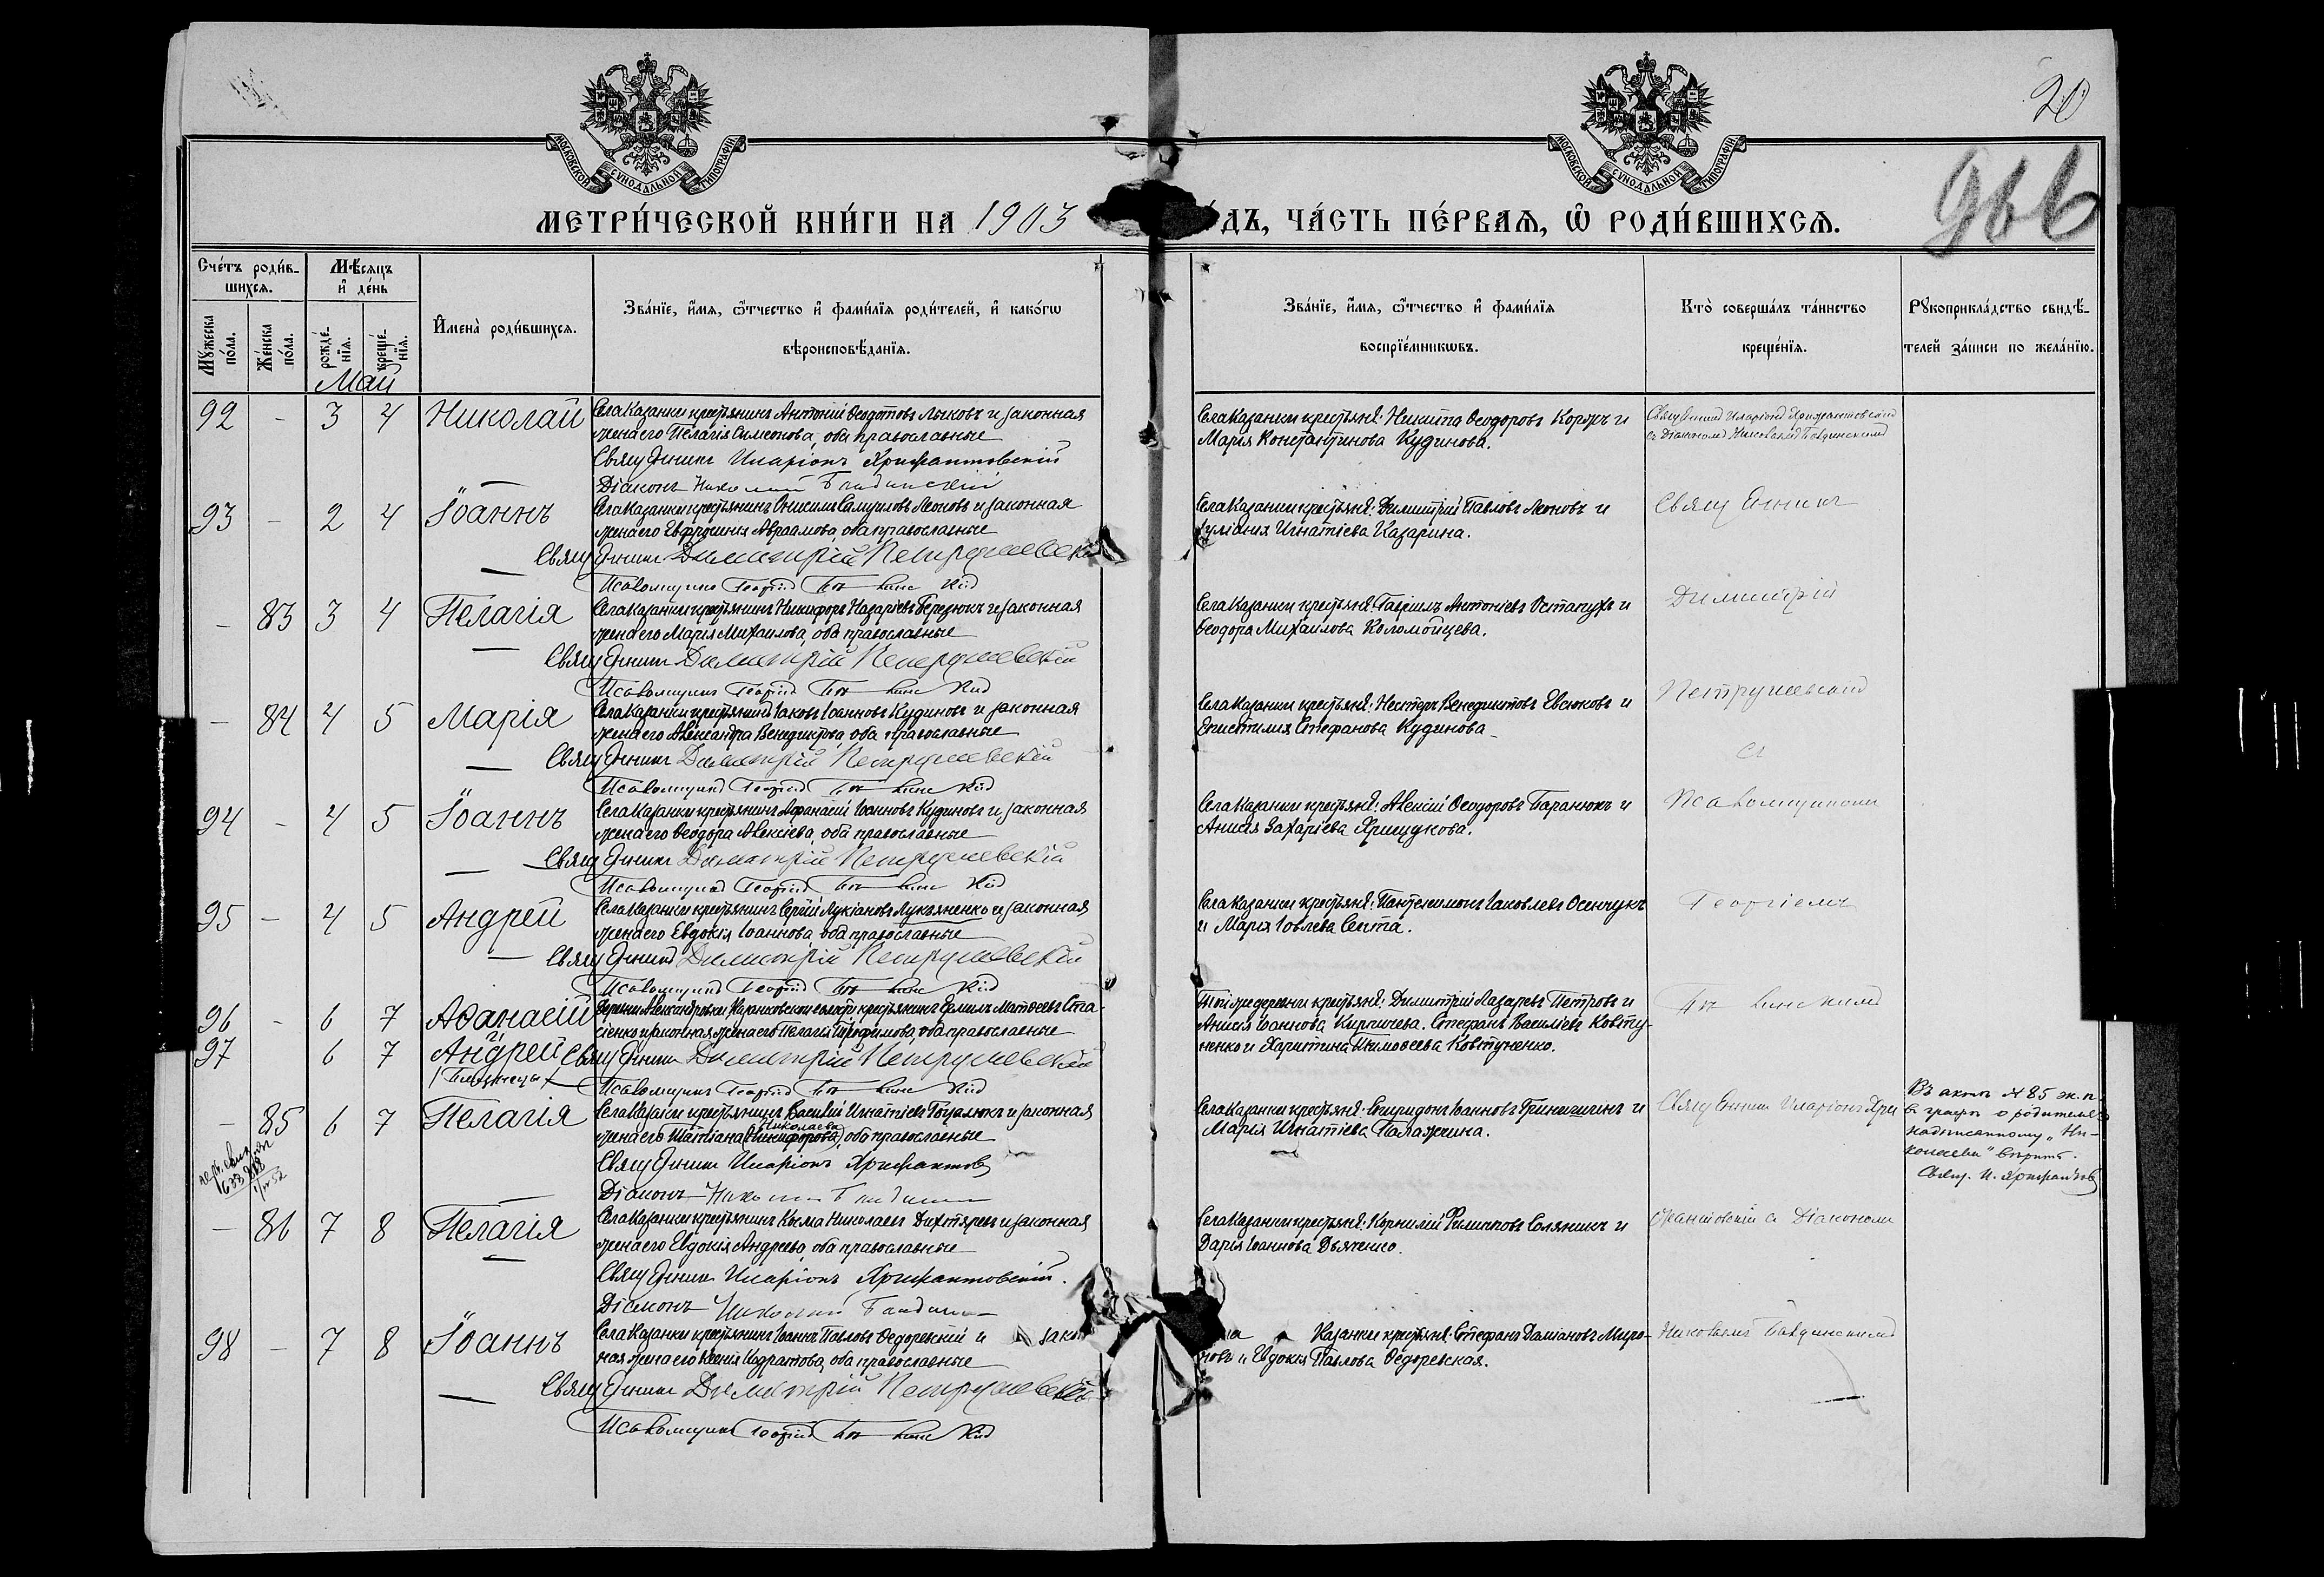 20
966
МОСКОВСКОЙ СѴНОДАЛЬНОЙ ТИПОГРАФІИ
МОСКОВСКОЙ СѴНОДАЛЬНОЙ ТИПОГРАФІИ
МЕТРИ́ЧЕСКОЙ КНИ́ГИ НА 1903 ДЪ, ЧА́СТЬ ПЕ́РВАѦ, Ѡ҆ РОДИ́ВШИХСѦ.
Сче́тъ роди́в-
шихсѧ.
Мꙋ́жеска по́ла.
Же́нска по́ла.
Мѣ́сѧцъ
и҆ де́нь
рожде́-нїѧ.
креще́-нїѧ.
Май
И҆мена̀ роди́вшихсѧ.
Зва́нїе, и҆́мѧ, ѻ҆́тчество и҆ фами́лїѧ роди́телей, и҆ како́гѡ
вѣроисповѣ́данїѧ.
Зва́нїе, и҆́мѧ, ѻ҆́тчество и҆ фами́лїѧ
воспрїе́мникѡвъ.
Кто̀ соверша́лъ та́инство
креще́нїѧ.
Рꙋкоприкла́дство свидѣ́-
телей за́писи по жела́нїю.
92 - 3 4 Николай
Села Казанки крестьянинъ Антоній Ѳеодотовъ Лысковъ и законная
жена его Пелагія Симеонова, оба православные
Священникъ Иларіонъ Хрисантовскій
Діаконъ Николай
Села Казанки крестьяне: Никита Ѳеодоровъ Коржъ и
Марія Константинова Кудинова.
Священникъ Иларіонъ Хрисантовскій
съ Діакономъ Николаемъ
93 - 2 4 Іоаннъ
Села Казанки крестьянинъ Онисимъ Самуиловъ Леоновъ и законная
жена его Евфросинія Авраамова, оба православные
Священникъ Димитрій Петрушевскій
Псаломщикъ Георгій
Села Казанки крестьяне: Димитрій Павловъ Леоновъ и
Іуліанія Игнатіева Казарина.
Священникъ
- 83 3 4 Пелагія
Села Казанки крестьянинъ Никифоръ Назаріевъ Березюкъ и законная
жена его Марія Михаилова, оба православные
Священникъ Димитрій Петрушевскій
Псаломщикъ Георгій
Села Казанки крестьяне: Гавріилъ Антоніевъ Остапчукъ и
Ѳеодора Михаилова Коломойцева.
Димитрій
- 84 4 5 Марія
Села Казанки крестьянинъ Іаковъ Іоанновъ Кудиновъ и законная
жена его Александра Венедиктова, оба православные
Священникъ Димитрій Петрушевскій
Псаломщикъ Георгій
Села Казанки крестьяне: Несторъ Венедиктовъ Евсюковъ и
Епистилія Стефанова Кудинова
Петрушевскій
съ
94 - 4 5 Іоаннъ
Села Казанки крестьянинъ Аѳанасій Іоанновъ Кудиновъ и законная
жена его Ѳеодора Алексіева, оба православные
Священникъ Димитрій Петрушевскій
Псаломщикъ Георгій
Села Казанки крестьяне: Алексій Ѳеодоровъ Баранюкъ и
Анисія Захаріева
Псаломщикомъ
95 - 4 5 Андрей
Села Казанки крестьянинъ Сергій Лукіановъ Лукьяненко и законная
жена его Евдокія Іоаннова, оба православные
Священникъ Димитрій Петрушевскій
Псаломщикъ Георгій
Села Казанки крестьяне: Пантелеимонъ Іаковлевъ Осипчукъ
и Марія Іовлева Септа.
Георгіемъ
96 - 6 7 Аѳанасій
97 6 7 Андрей
(Близнецы)
Деревни Александровки Казанковской волости крестьянинъ Емиліанъ Матѳеевъ Ста-
сіенко и законная жена его Пелагія Трофимова, оба православные
Священникъ Димитрій Петрушевскій
Псаломщикъ Георгій
Той же деревни крестьяне: Димитрій Лазаревъ Петровъ и
Анисія Іоаннова Кирпичева. Стефанъ Василіевъ Ковту-
ненко и Харитина Тимоѳеева Ковтуненко.
- 85 6 7 Пелагія
Села Казанки крестьянинъ Василій Игнатіевъ Гоцалюкъ и законная
Николаева
жена его Татіана (Никифорова), оба православные
Священникъ Иларіонъ Хрисантов
Діаконъ Николай
Села Казанки крестьяне: Спиридонъ Іоанновъ Гринишинъ и
Марія Игнатіева Палажчина.
Священникъ Иларіонъ Хри
Въ актѣ № 85 ж. п.
въ графѣ о родителяхъ
надписанному „Ни-
колаева" вѣрить.
Свящ. И. Хрисантов
- 86 7 8 Пелагія
Села Казанки крестьянинъ Косма Николаевъ Дихтяревъ и законная
жена его Евдокія Андреева, оба православные
Священникъ Иларіонъ Хрисантовскій.
Діаконъ Николай
Села Казанки крестьяне: Корнилій Филипповъ Солянникъ и
Дарія Іоаннова Дьяченко.
сантовскій съ Діакономъ
98 - 7 8 Іоаннъ
Села Казанки крестьянинъ Іоаннъ Павловъ Ѳедоревскій и закон
ная жена его Ксенія Кодратова, оба православные
Священникъ Димитрій Петрушевскій
Псаломщикъ Георгій
Казанки крестьяне: Стефанъ Даміановъ Миро-
новъ и Евдокія Павлова Ѳедоревская.
Николаемъ